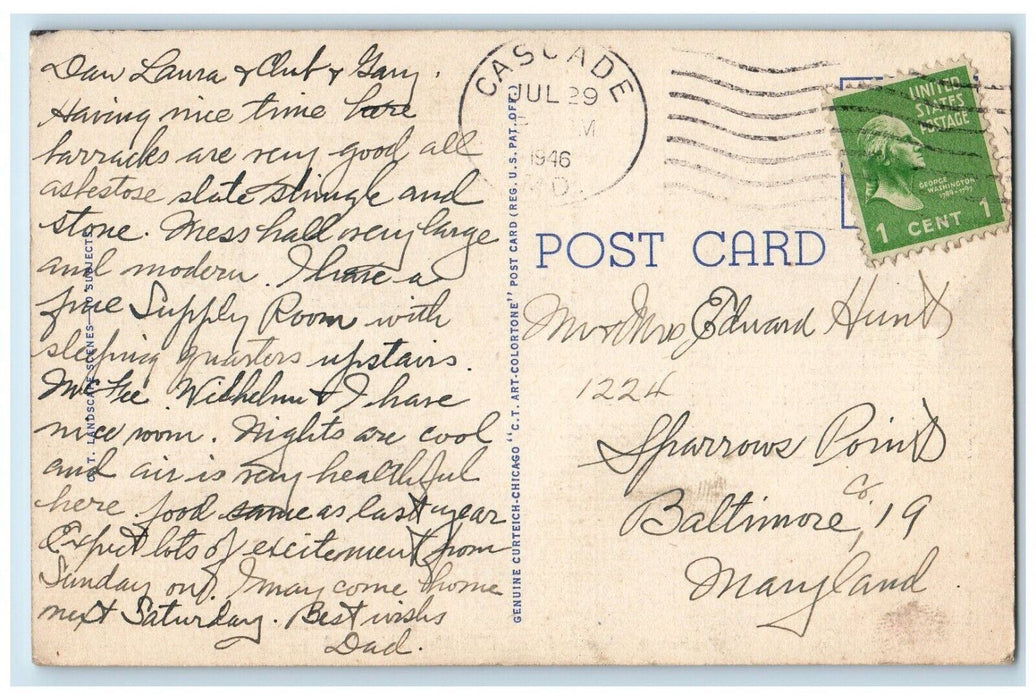 Dear Laura & Chub & Gary.
Having nice time here
barracks are very good all
asbestose slate shingle and
stone. Mess hall very large
and modern. I have a
fine Supply Room with
sleeping quarters upstairs.
McGee Wilhelm & I have
nice room. Nights are cool
and air is very healthful
here. food same as last year
Expect lots of excitement from
Sunday on. I may come home
next Saturday. Best wishes
Dad.
C. T. LANDSCAPE SCENES— SUBJECTS
GENUINE CURTEICH-CHICAGO "C. T. ART-COLORTONE" POST CARD (REG. U. S. PAT. OFF.)
CASCADE
JUL 29
M
1946
MD.
UNITED
STATES
POSTAGE
GEORGE
WASHINGTON
1789-1797
1 CENT 1
POST CARD
Mr & Mrs Edward Hunt
1224
Sparrows Point
Baltimore Co. 19
Maryland